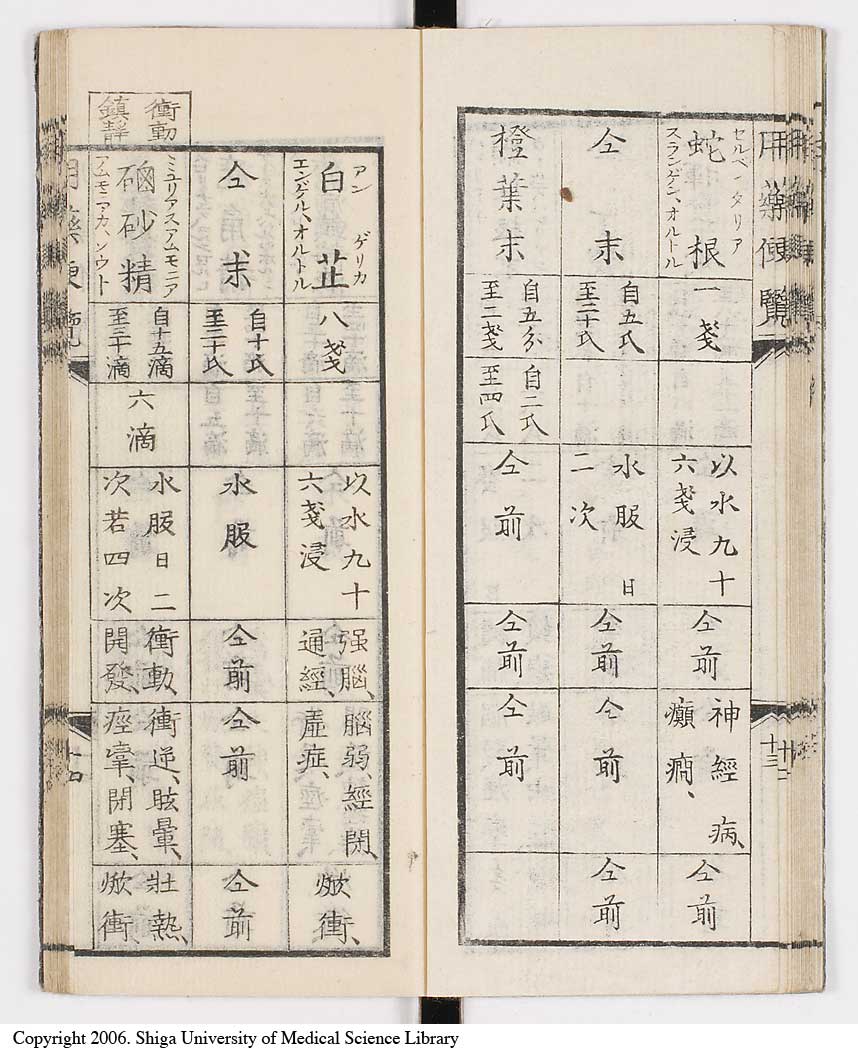 用藥便覽
セルペンタリア
蛇根
スランゲン、オルトル
一戔
以水九十
六戔浸
仝前
神經病、
癲癇、
仝前
仝末
自五氏
至二十氏
水服 日
二次
仝前
仝前
仝前
橙葉末
自五分
至二戔
自二氏
至四氏
仝前
仝前
仝前
十三
アンゲリカ
白芷
エンゲル、オルトル
八戔
以水九十
六戔浸
强腦、
通經、
腦弱、經閉、
虛症、
焮衝、
仝末
自十氏
至二十氏
水服
仝前
仝前
仝前
衝動
鎮靜
ミュリアスアムモニア
硇砂精
アムモニアカ、ソウト
自十五滴
至三十滴
六滴
水服日二
次若四次
衝動、
開發、
衝逆、眩暈、
痙攣、閉塞、
壯熱、
焮衝、
用藥便覽
十四
Copyright 2006. Shiga University of Medical Science Library